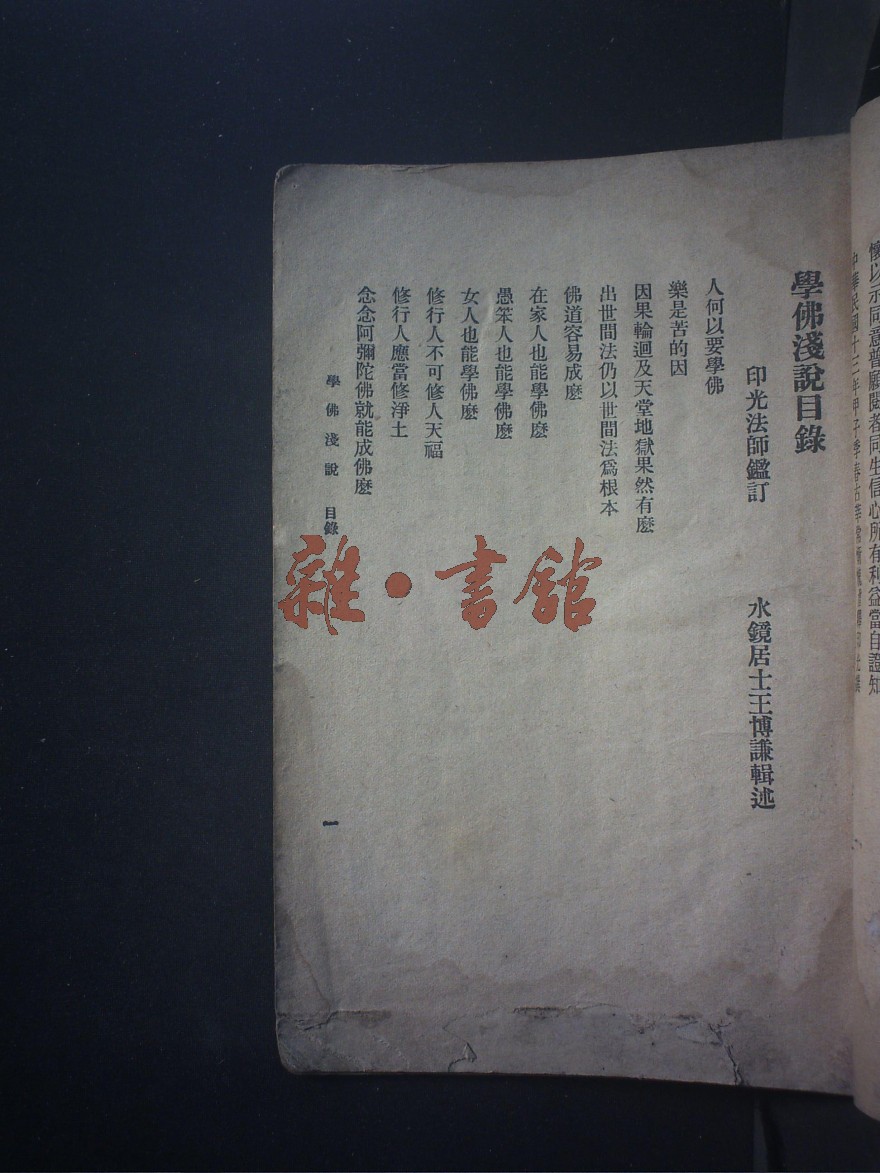 懷以示同意普願閱者同生信心所有利益當自證知
中華民國十三年甲子季春古莘
學佛淺說目錄
印光法師鑑訂
水鏡居士王博謙輯述
人何以要學佛
樂是苦的因
因果輪迴及天堂地獄果然有麽
出世間法仍以世間法爲根本
佛道容易成麽
在家人也能學佛麽
愚笨人也能學佛麽
女人也能學佛麽
修行人不可修人天福
修行人應當修淨土
念念阿彌陀佛就能成佛麽
學佛淺說 目錄
一
雜·書館